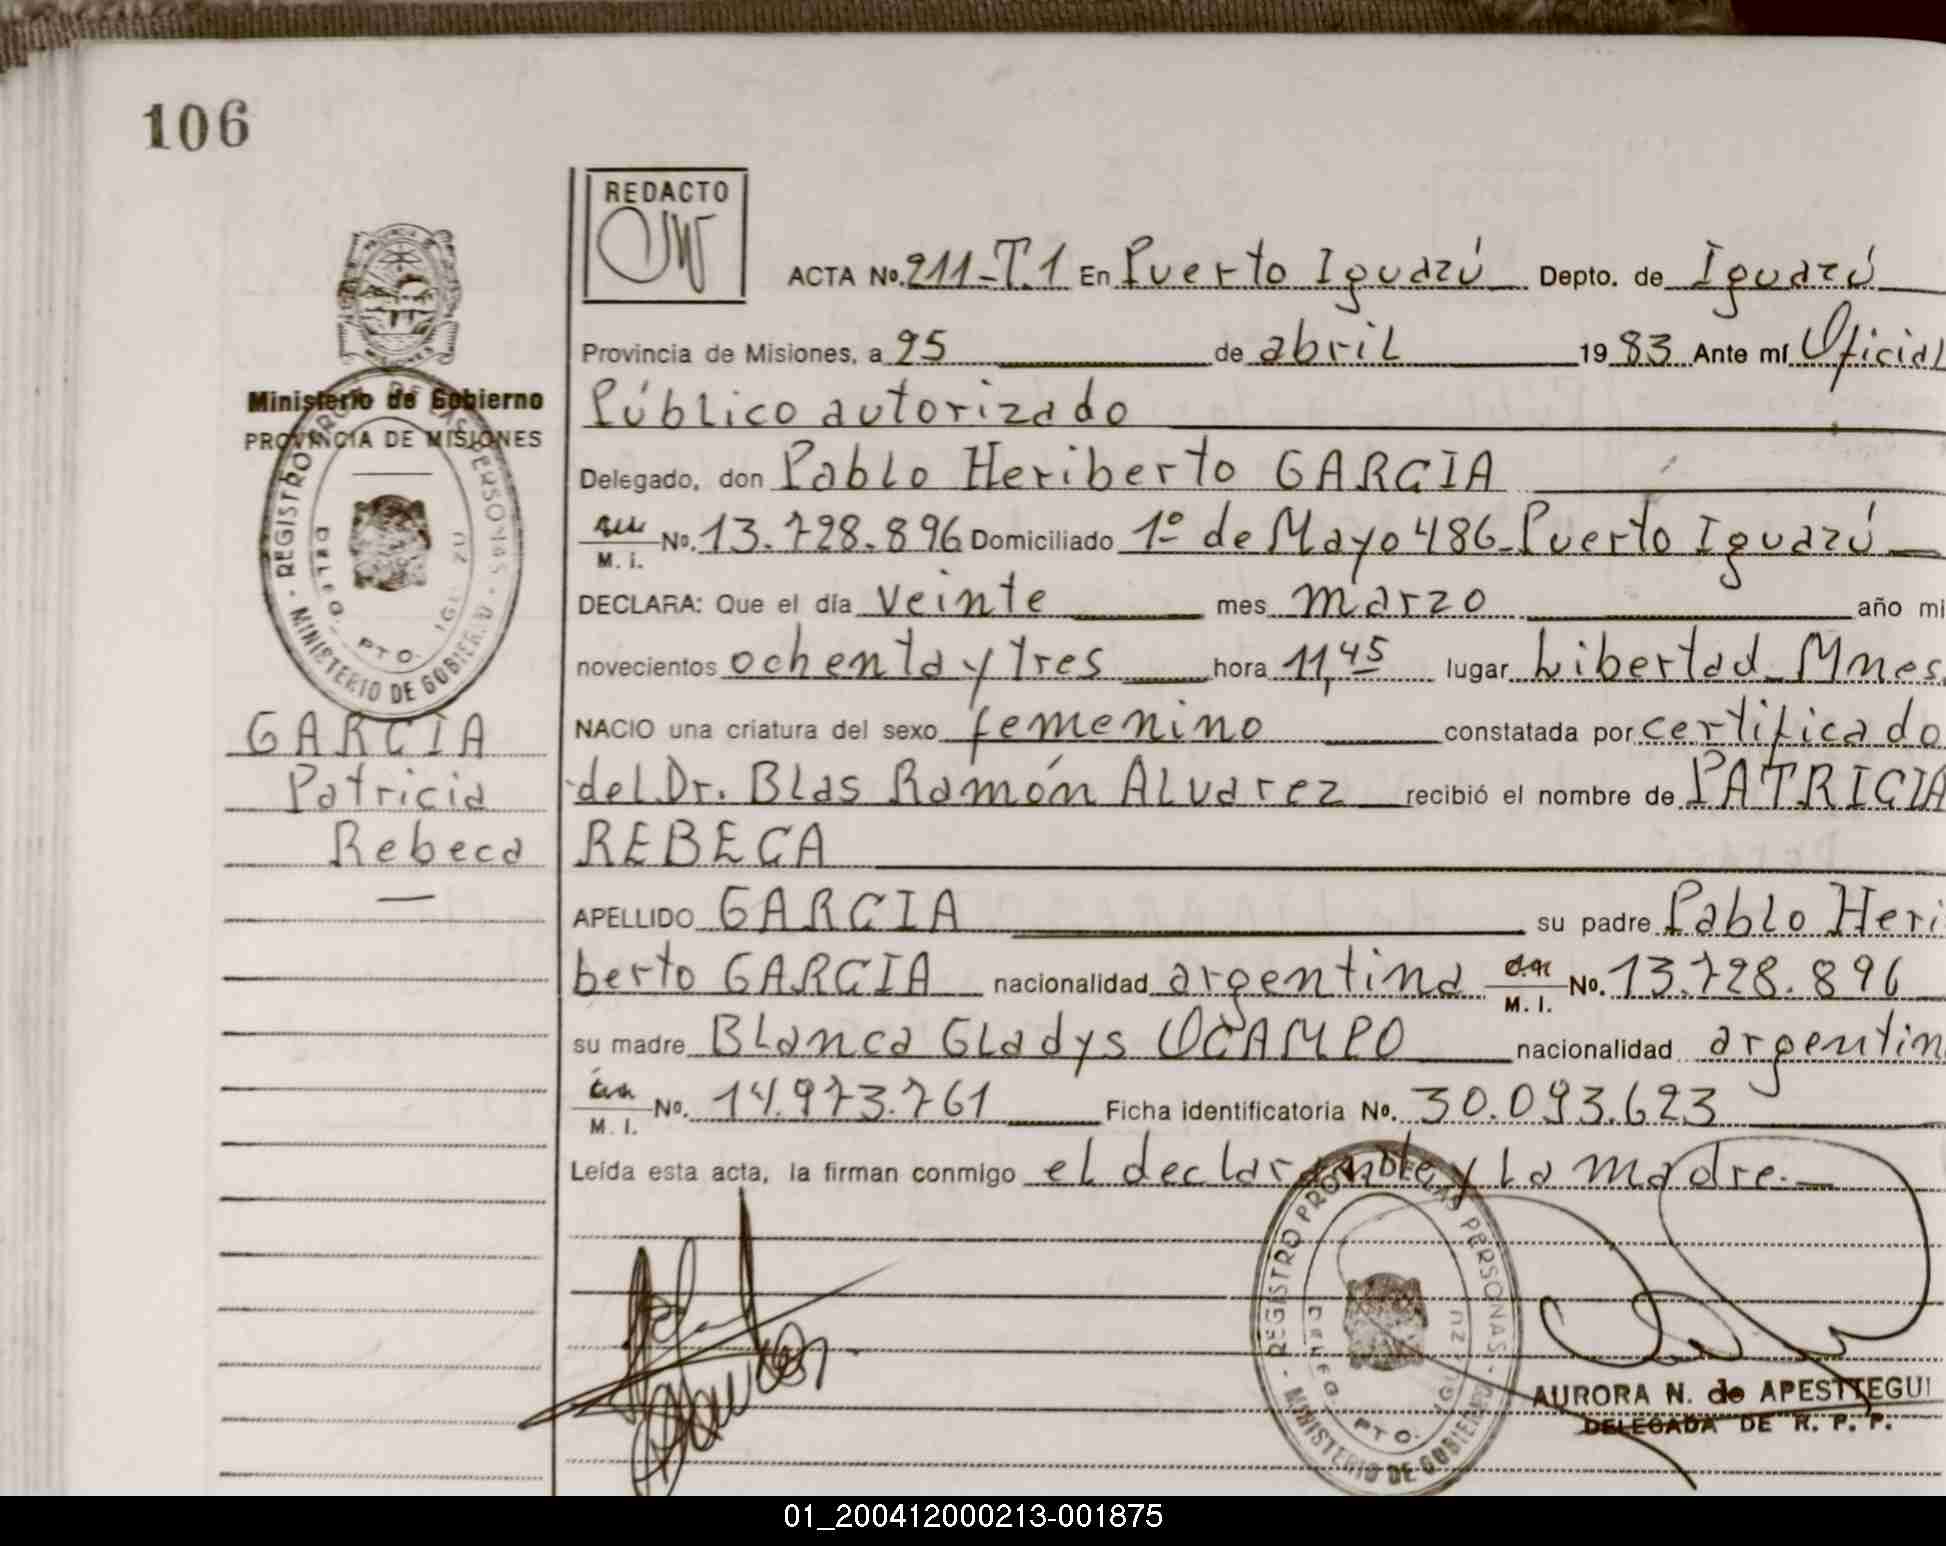 106
REDACTO
ACTA No. 211-T.1 En Puerto Iguazú Depto. de Iguazú
Provincia de Misiones, a 25 de abril 1983 Ante mí Oficial
Público autorizado
Delegado, don Pablo Heriberto GARCIA
M. I. No. 13.728.896 Domiciliado 1º de Mayo 486-Puerto Iguazú
DECLARA: Que el día veinte mes marzo año mi
novecientos ochenta y tres hora 11,45 lugar Libertad Mnes.
NACIO una criatura del sexo femenino constatada por certificado
del Dr. Blas Ramón Alvarez recibió el nombre de PATRICIA
REBECA
APELLIDO GARCIA su padre Pablo Heri
berto GARCIA nacionalidad argentina M. I. No. 13.728.896
su madre Blanca Gladys OCAMPO nacionalidad argentin
M. I. No. 14.973.761 Ficha identificatoria No. 30.093.623
Leída esta acta, la firman conmigo el declarante y la madre.-
Ministerio de Gobierno
PROVINCIA DE MISIONES
REGISTRO PROV. DE LAS PERSONAS - MINISTERIO DE GOBIERNO
DELEG. PTO. IGUAZU
GARCIA
Patricia
Rebeca
REGISTRO PROV. DE LAS PERSONAS - MINISTERIO DE GOBIERNO
DELEG. PTO. IGUAZU
AURORA N. de APESTTEGUI
DELEGADA DE R. P. P.
01_200412000213-001875